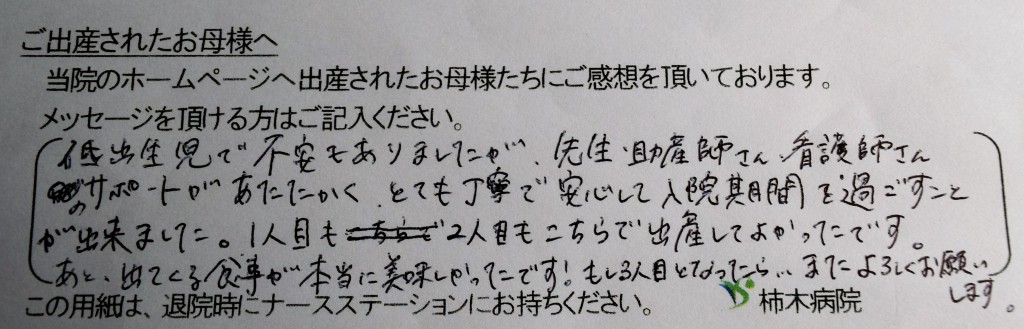 ご出産されたお母様へ
当院のホームページへ出産されたお母様たちにご感想を頂いております。
メッセージを頂ける方はご記入ください。
低出生児で不安もありましたが、先生・助産師さん、看護師さん
のサポートがあたたかく、とても丁寧で安心して入院期間を過ごすこと
が出来ました。1人目も2人目もこちらで出産してよかったです。
あと、出てくる食事が本当に美味しかったです!もし3人目となったら…またよろしくお願い
します。
この用紙は、退院時にナースステーションにお持ちください。 柿木病院